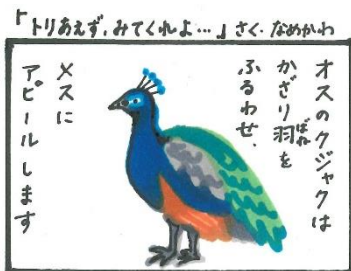 「トリあえず、みてくれよ…」さく・なめかわ
オスのクジャクは
かざり羽を
ばね
ふるわせ、
メスに
アピールします